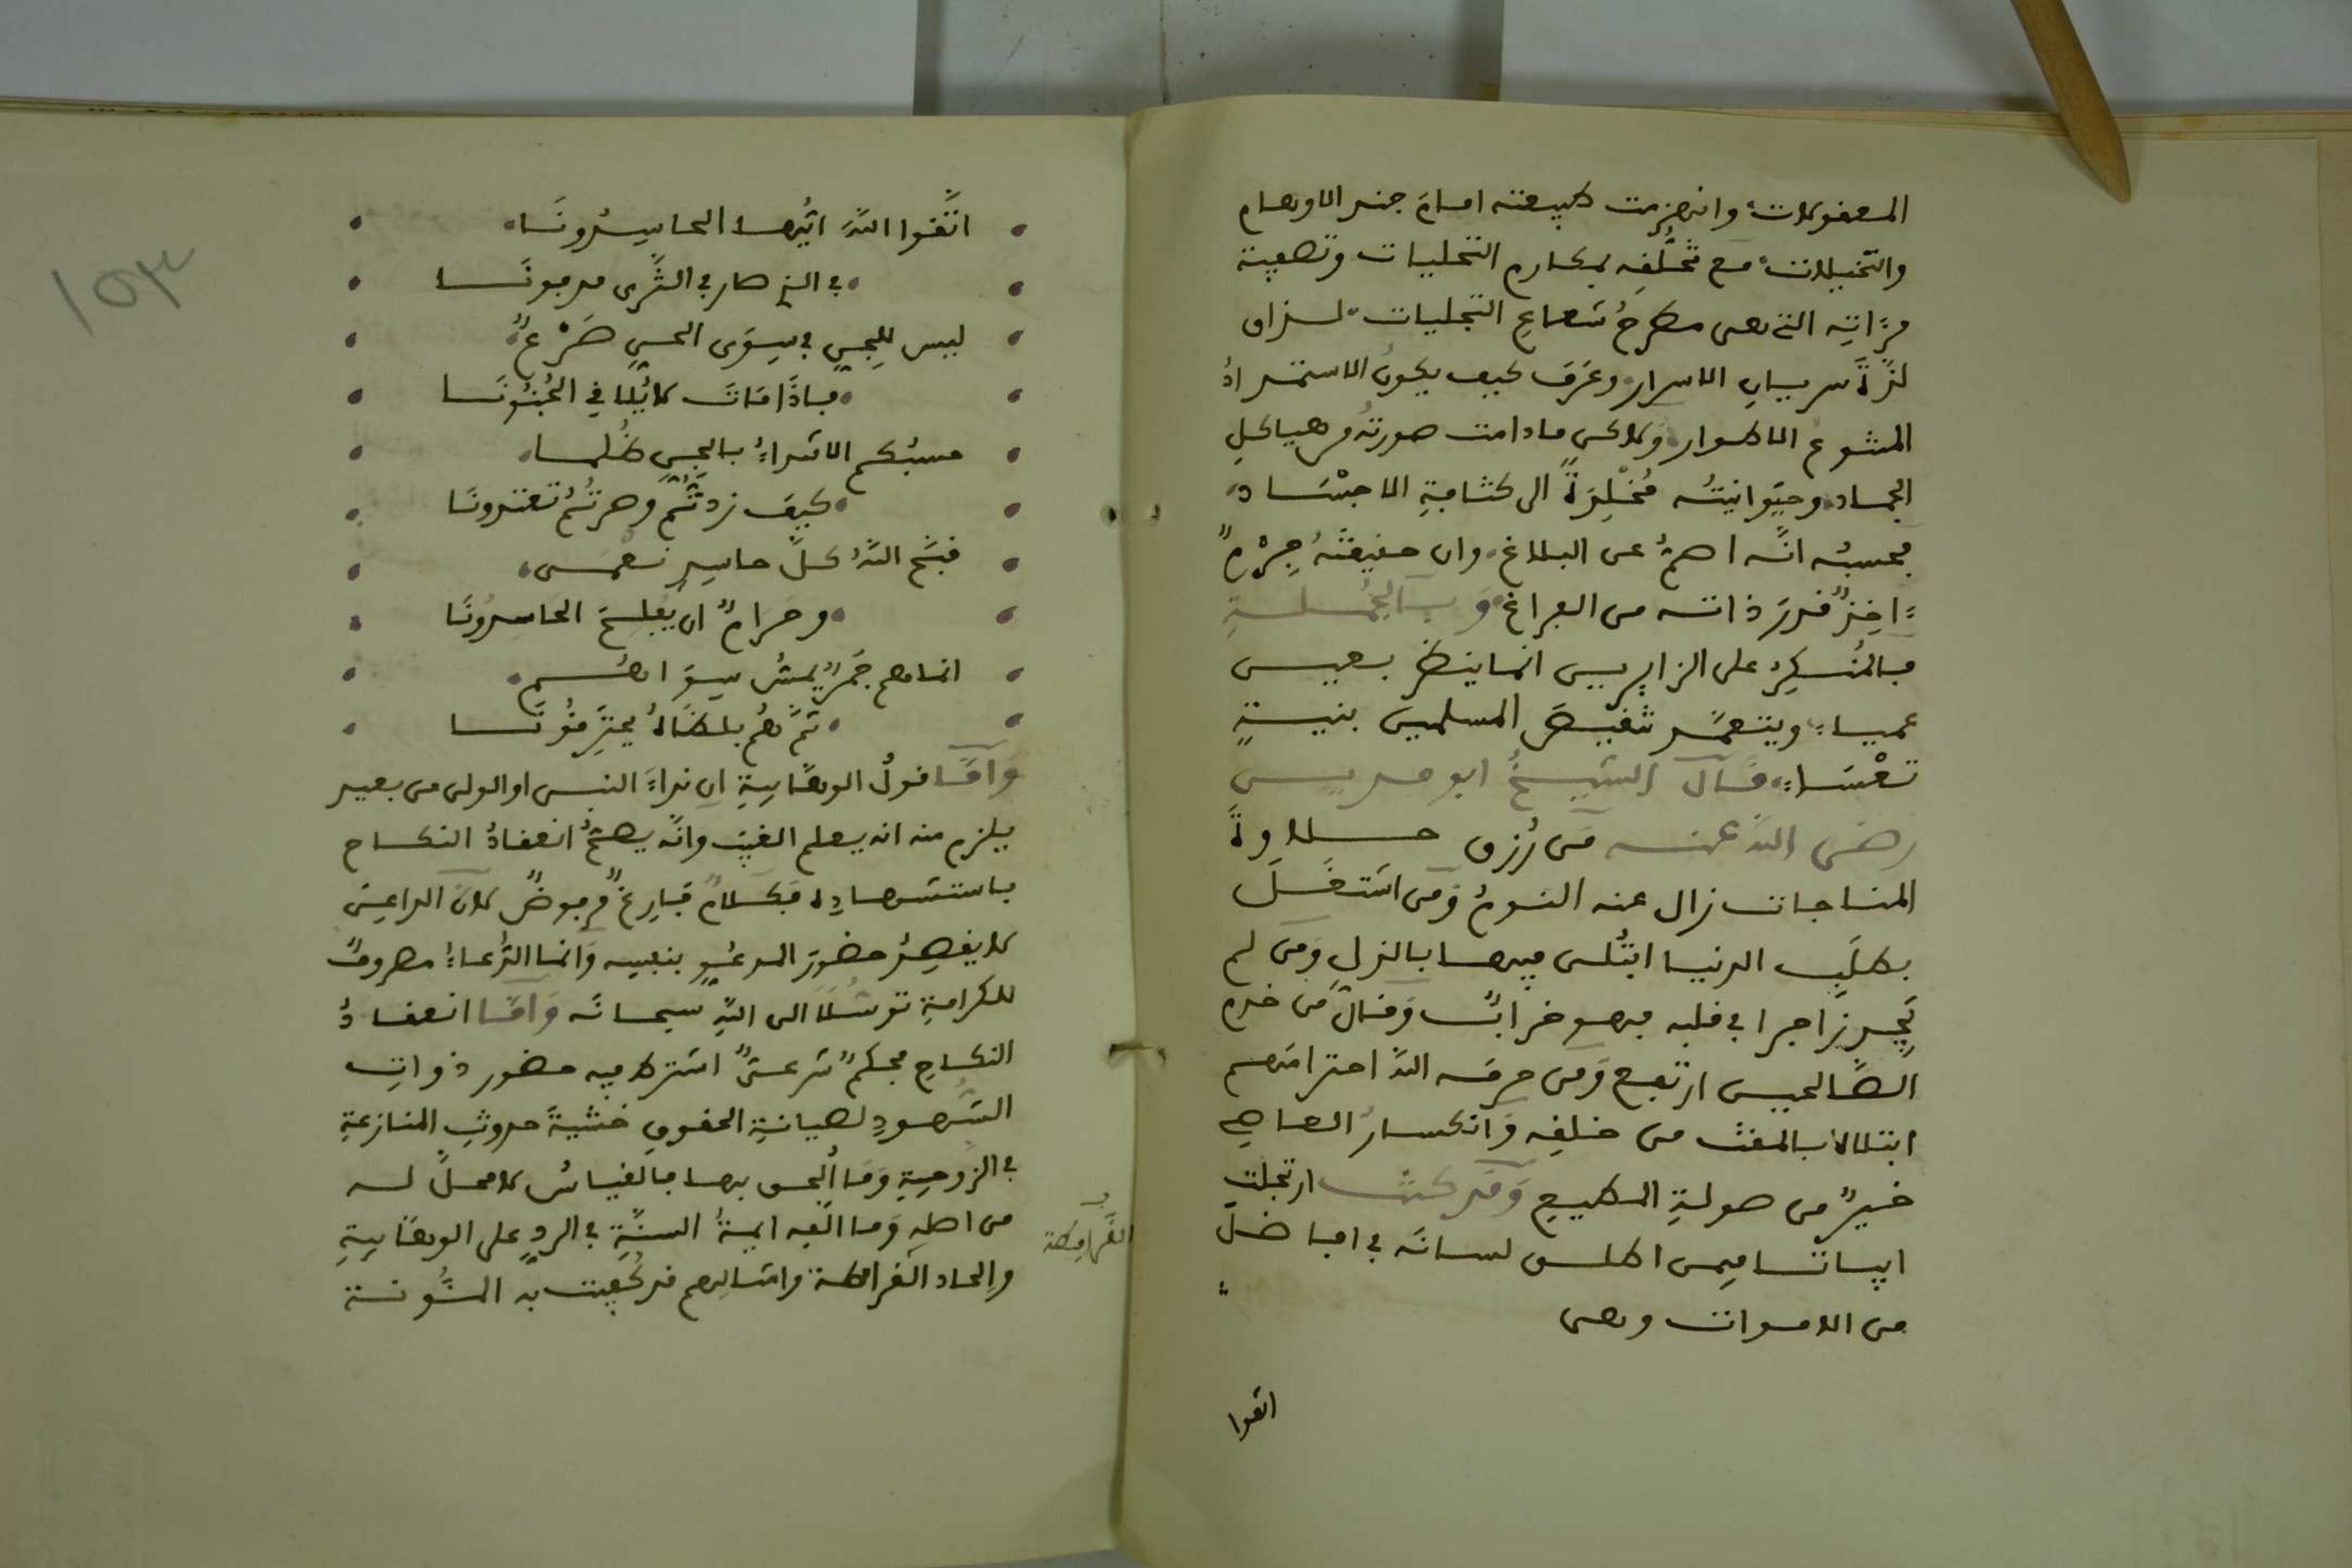 المعقولات، وانهزمت طبيعته امام جند الاوهام
والتخيلات، مع تخلقه بمكارم التحليات وتصفية
مرءاته التى هى مطرح شعاع التجليات، لذاق
لذة سريان الاسرار، وعرف كيف يكون الاستمداد
المتنوع الاطوار، ولاكن مادامت صورته من هياكل
الجماد، وحيوانيته مخلدة الى كثافة الاجساد،
فحسبه انه اصم عن البلاغ، وان حقيقته جرم
ءاخذ قدر ذاته من الفراغ، وبالجملة
فالمنكر على الزايرين انما ينظر بعين
عمياء، ويتعمد تنقيص المسلمين بنية
تعساء، قال الشيخ ابو مدين
رضى الله عنه من رزق حلاوة
المناجات زال عنه النوم ومن اشتغل
بطلب الدنيا ابتلى فيها بالذل ومن لم
يجد زاجرا فى قلبه فهو خراب وقال من خدم
الصالحين ارتفع ومن حرمه الله احترامهم
ابتلاه بالمقت من خلقه وانكسار العاصى
خير من صولة المطيع وقد كنت ارتجلت
ابياتا فيمن اطلق لسانه فى افاضل
من الاموات وهى
اتقوا
اتقوا الله ايها الحاسدونا
فى الذى صار فى الثرى مدفونا
ليس للحى فى سوى الحى ضرع
فاذا مات لا يلافى الجنونا
حسبكم الازدراء بالحى ظلما
كيف زدتم وصرتم تعتدونا
قبح الله كل حاسد نعمى
وحرام ان يفلح الحاسدونا
انما هم جمر يمس سواهم
ثم هم بلظاه يحترقونا
واما قول الوهابية ان نداء النبى او الولى من بعيد
يلزم منه انه يعلم الغيب وانه يصح انعقاد النكاح
باستشهاده فكلام فارغ مرفوض لان الداعى
لا يقصد حضور المدعو بنفسه وانما الدعاء مصروف
للكرامة توسلا الى الله سبحانه واما انعقاد
النكاح فحكم شرعى اشترط فيه حضور ذوات
الشهود لصيانة الحقوق خشية حدوث المنازعة
فى الزوجية وما الحق بها فالقياس لا محل له
من اصله وما الفه ايمة السنة فى الرد على الوهابية
والحاد القرامطة وامثالهم قد كفيت به المئونة
القرامطة
١٥٣